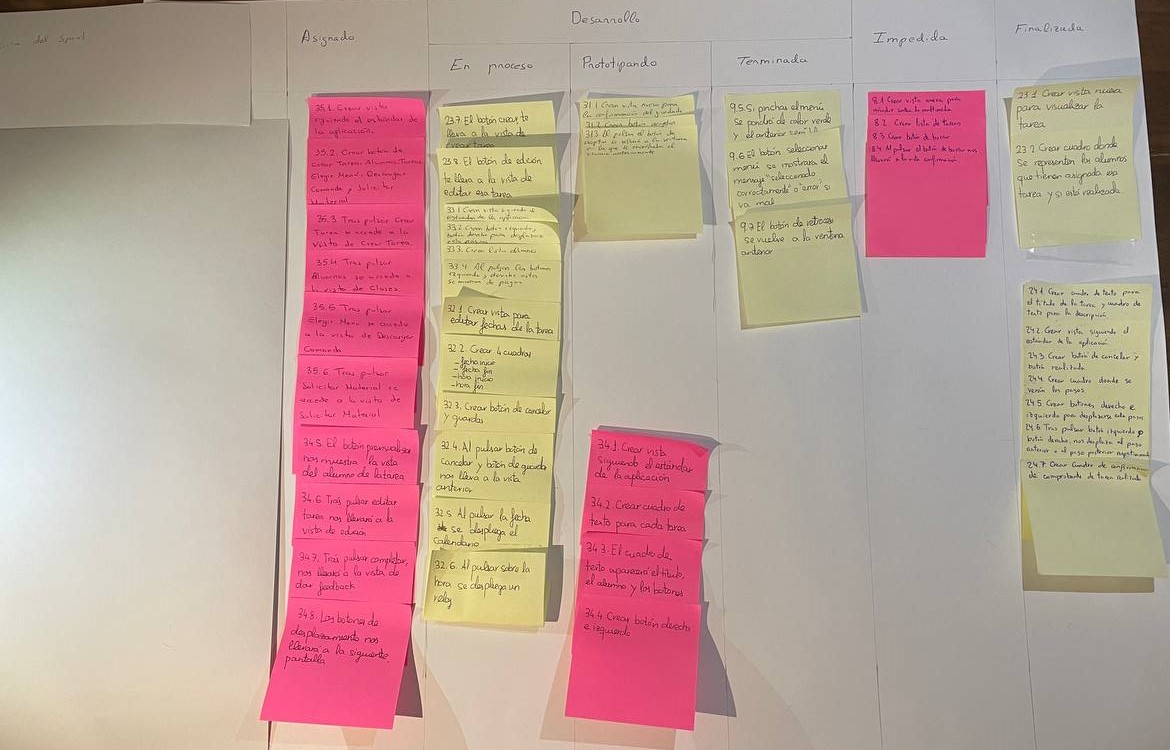 Desarrollo
Asignado
En proceso
Prototipando
Terminada
Impedida
Finalizada
35.1. Crear vista
siguiendo el estándar de
la aplicación.
35.2. Crear botón de
Crear Tarea, Alumnos, Tarea,
Elegir Menú, Descargar
Comanda y Solicitar
Material
35.3 Tras pulsar Crear
Tarea se accede a la
vista de Crear Tarea
35.4 Tras pulsar
Alumnos se accede a
la vista de Clases
35.5 Tras pulsar
Elegir Menú se accede
a la vista de Descargar
Comanda
35.6. Tras pulsar
Solicitar Material se
accede a la vista de
Solicitar Material
34.5. El botón previsualizar
nos muestra la vista
del alumno de la tarea
34.6 Tras pulsar editar
tarea nos llevará a la
vista de edición
34.7. Tras pulsar completar,
nos llevará a la vista de
dar feedback
34.8. Los botones de
desplazamiento nos
llevará a la siguiente
pantalla
23.7. El botón crear te
lleva a la vista de
crear tarea
23.8. El botón de edición
te lleva a la vista de
editar esa tarea
33.1 Crear vista siguiendo el
estándar de la aplicación
33.2 Crear botón izquierdo,
botón derecho para desplazarse
33.3. Crear lista alumnos
33.4. Al pulsar los botones
izquierdo y derecho estos
se mueven de página
32.1 Crear vista para
editar fechas de la tarea
32.2. Crear 4 cuadros
- fecha inicio
- fecha fin
- hora inicio
- hora fin
32.3. Crear botón de cancelar
y guardar
32.4. Al pulsar botón de
cancelar y botón de guardar
nos lleva a la vista
anterior
32.5 Al pulsar la fecha
se despliega el
Calendario
32.6. Al pulsar sobre la
hora se despliega un
reloj
31.1 Crear vista nueva para
la confirmación del guardado
31.2 Crear botón aceptar
31.3 Al pulsar el botón de
34.1. Crear vista
siguiendo el estándar
de la aplicación
34.2. Crear cuadro de
texto para cada tarea
34.3. El cuadro de
texto aparecerá el título,
el alumno y los botones
34.4 Crear botón derecho
e izquierdo
9.5. Si pinchas el menú
se pondrá de color verde
y el anterior
9.6 El botón seleccionar
menú se mostrara el
mensaje "seleccionado
correctamente" o "error" si
va mal
9.7 El botón de retroceso
se vuelve a la ventana
anterior
8.1 Crear vista nueva para
8.2 Crear lista de tareas
8.3 Crear botón de borrar
8.4 Al pulsar el botón de borrar nos
llevará a la vista confirmación
23.1 Crear vista nueva
para visualizar la
tarea
23.2 Crear cuadro donde
se representen los alumnos
que tienen asignada esa
tarea y si está realizada.
24.1 Crear cuadro de texto para
el título de la tarea y cuadro de
texto para la descripción.
24.2. Crear vista siguiendo el
estándar de la aplicación
24.3. Crear botón de cancelar y
botón realizada
24.4 Crear cuadro donde se
verán los pasos
24.5 Crear botones derecho e
izquierdo para desplazarse cada paso
24.6 Tras pulsar botón izquierdo o
botón derecho, nos desplaza al paso
anterior o al paso posterior respectivamente
24.7 Crear Cuadro de confirmación
de comprobante de tarea realizada